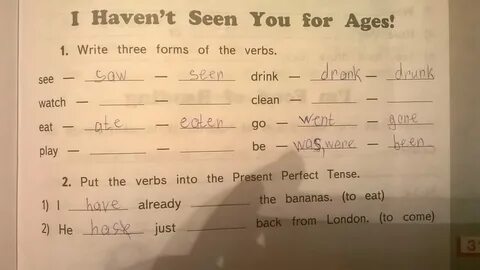 I Haven't Seen You for Ages!
1. Write three forms of the verbs.
see — saw — seen drink — drank — drunk
watch — ____ — ____ clean — ____ — ____
eat — ate — eaten go — went — gone
play — ____ — ____ be — was, were — been
2. Put the verbs into the Present Perfect Tense.
1) I have already ____ the bananas. (to eat)
2) He has just ____ back from London. (to come)